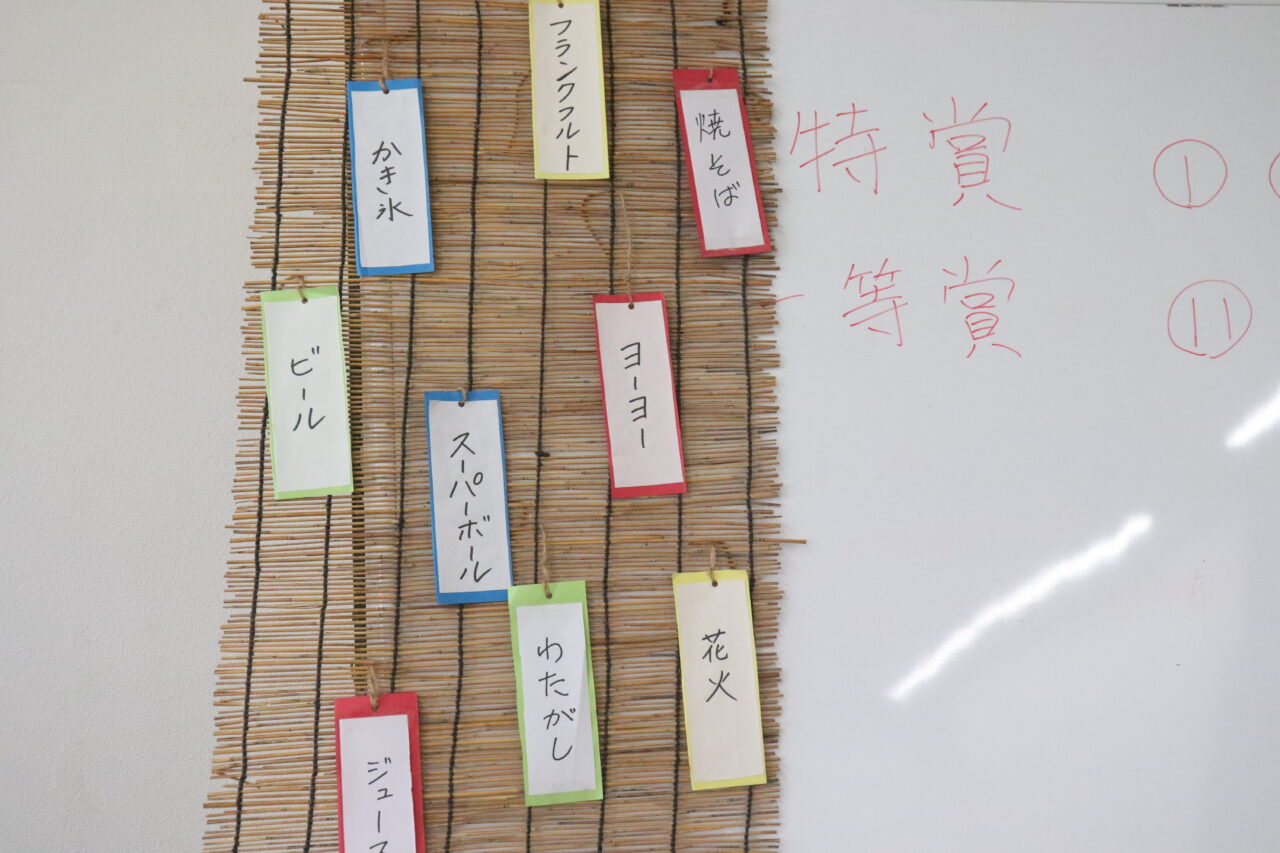 フランクフルト
焼そば
かき氷
ビール
ヨーヨー
スーパーボール
わたがし
花火
ジュース
特賞 ①
一等賞 ⑪